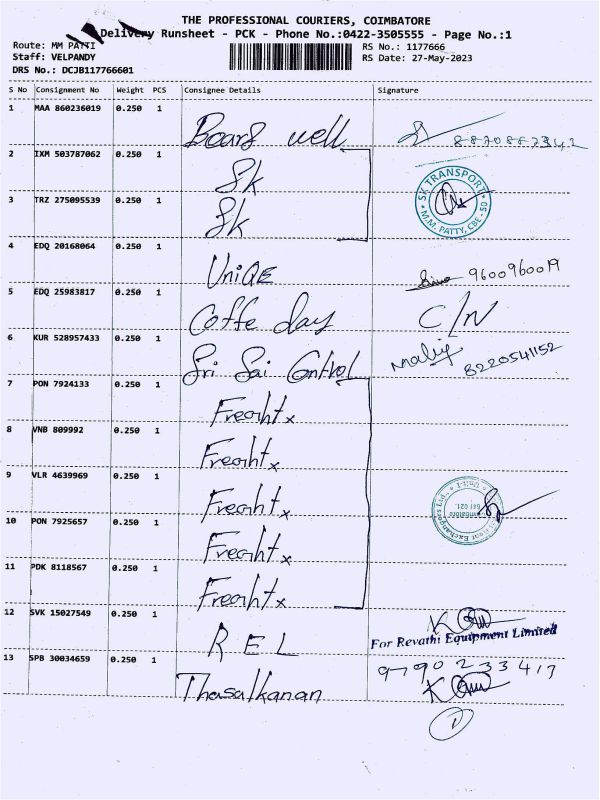 THE PROFESSIONAL COURIERS, COIMBATORE
Delivery Runsheet - PCK - Phone No.:0422-3505555 - Page No.:1
Route: MM PATTI
Staff: VELPANDY
DRS No.: DCJB117766601
RS No.: 1177666
RS Date: 27-May-2023
S No Consignment No Weight PCS Consignee Details Signature
1 MAA 860236019 0.250 1 Board well 8870887342
2 IXM 503787062 0.250 1 Sk
SK TRANSPORT
M.M. PATTY, CBE - 50
3 TRZ 275095539 0.250 1 Sk
4 EDQ 20168064 0.250 1 UniQE 9600960019
5 EDQ 25983817 0.250 1 Coffe day C/N
6 KUR 528957433 0.250 1 Sri Sai Control 8220541152
7 PON 7924133 0.250 1 Freaiht x
8 VNB 809992 0.250 1 Freaiht x
9 VLR 4639969 0.250 1 Freaiht x
Unit-I
641 021.
10 PON 7925657 0.250 1 Freaiht x
11 PDK 8118567 0.250 1 Freaiht x
12 SVK 15027549 0.250 1 R E L
For Revathi Equipment Limited
13 SPB 30034659 0.250 1 Thasalkanan
9790233417
1